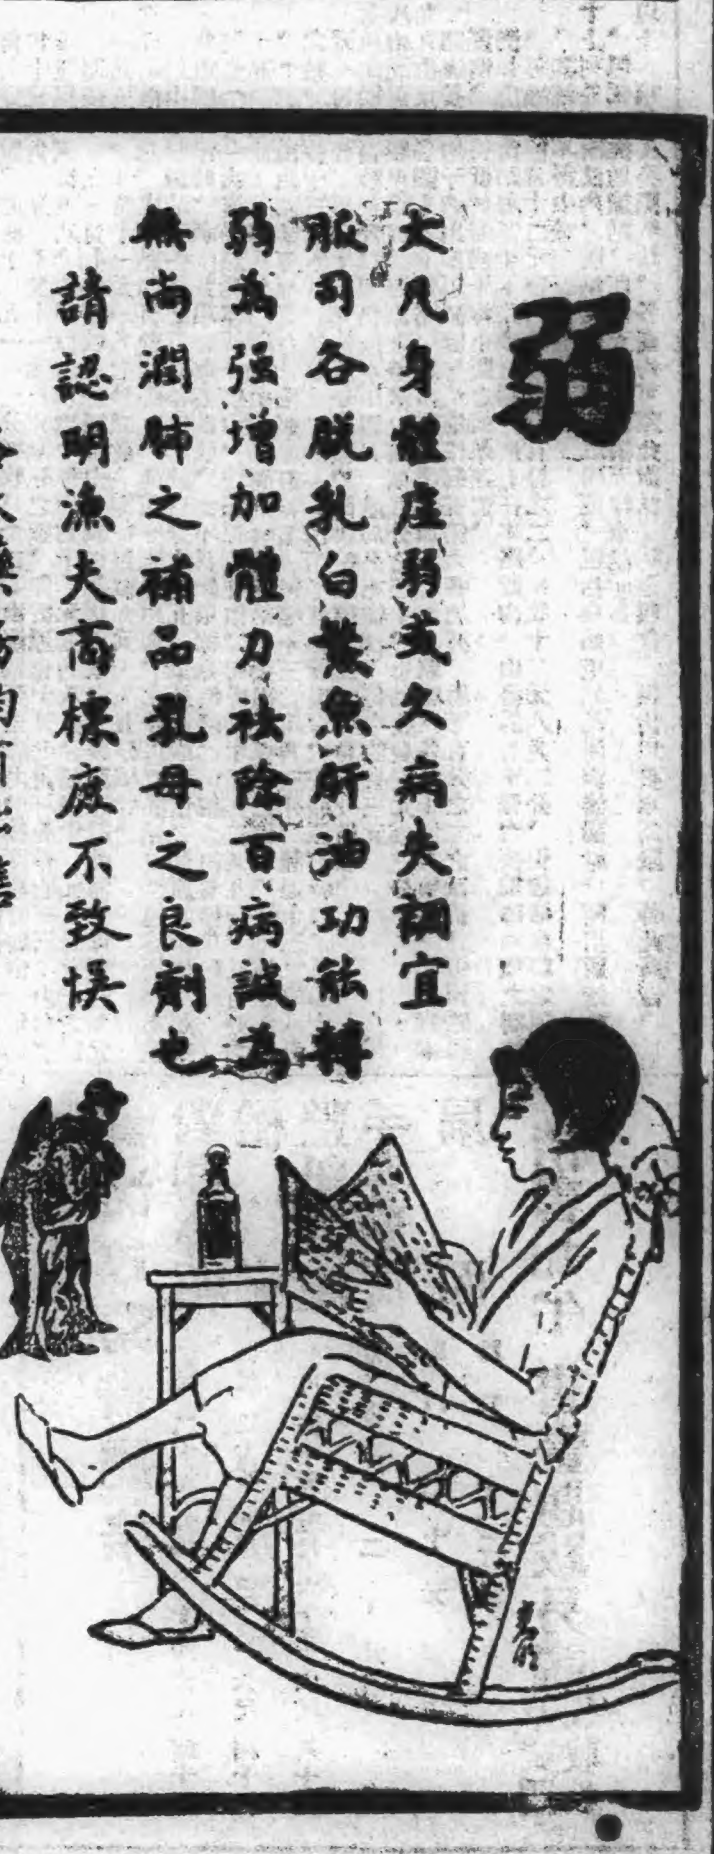 弱
大凡身體虛弱或久病失調宜
服司各脫乳白鰵魚肝油功能轉
弱為强增加體力祛除百病誠為
無尚潤肺之補品乳母之良劑也
請認明漁夫商標庶不致悞
房均有出售